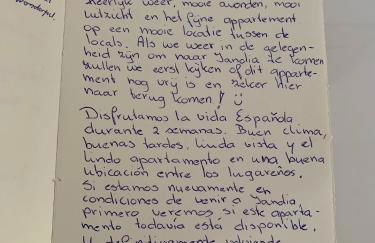 heerlijk weer, mooie avonden, mooi
uitzicht en het fijne appartement
op een mooie locatie tussen de
locals. Als we weer in de gelegen-
heid zijn om naar Jandia te komen
zullen we eerst kijken of dit apparte-
ment nog vrij is en zeker hier
naar terug komen! ☺
Disfrutamos la vida Española
durante 2 semanas. Buen clima,
buenas tardes, linda vista y el
lindo apartamento en una buena
ubicación entre los lugareños.
Si estamos nuevamente en
condiciones de venir a Jandia
primero veremos si este aparta-
mento todavía está disponible.